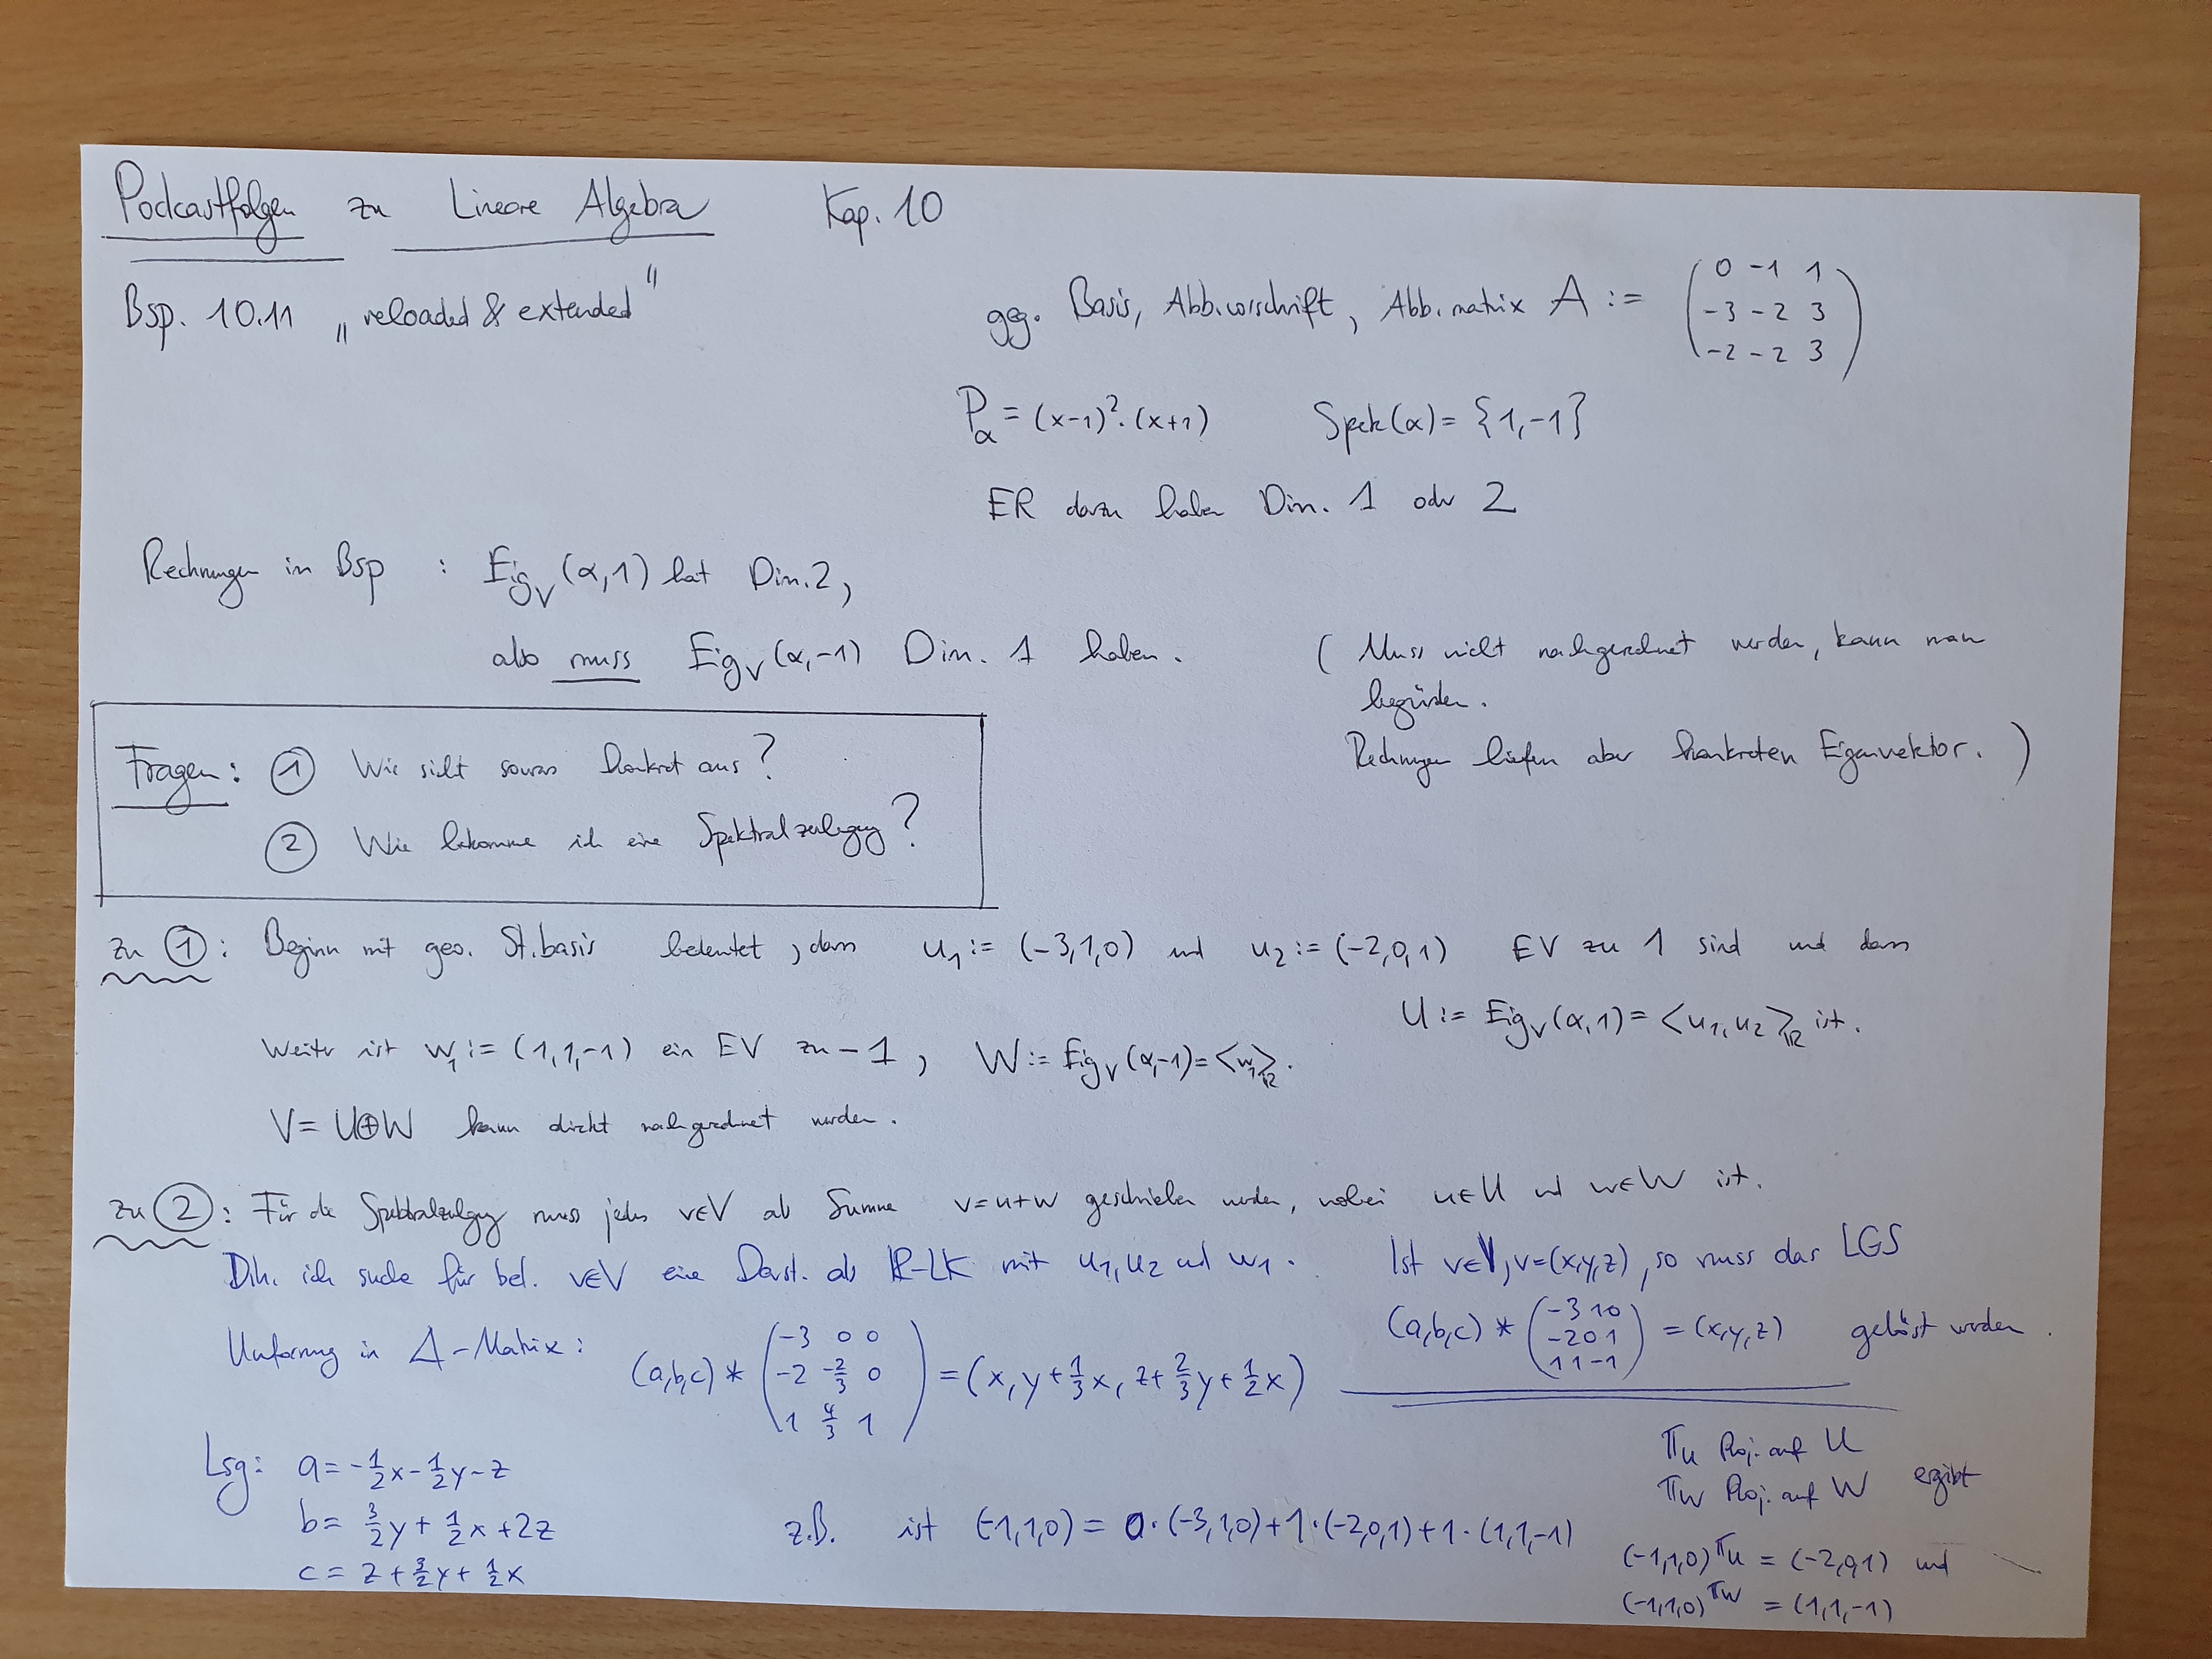 Podcastfolgen zu Lineare Algebra Kap. 10
Bsp. 10.11 „reloaded & extended"
geg. Basis, Abb.vorschrift, Abb.matrix A := ( 0 -1 1
-3 -2 3
-2 -2 3 )
P_α = (x-1)²·(x+1) Spek(α) = {1,-1}
ER dazu haben Dim. 1 oder 2
Rechnungen in Bsp : Eig_V (α,1) hat Dim. 2,
also muss Eig_V (α,-1) Dim. 1 haben.
( Muss nicht nachgerechnet werden, kann man
begründen.
Rechnungen liefern aber konkreten Eigenvektor. )
Fragen: ① Wie sieht sowas konkret aus?
② Wie bekomme ich eine Spektralzerlegung?
zu ①: Beginn mit geo. St.basis bedeutet, dass u₁ := (-3,1,0) und u₂ := (-2,0,1) EV zu 1 sind und dass
U := Eig_V (α,1) = <u₁, u₂>_ℝ ist.
Weiter ist w₁ := (1,1,-1) ein EV zu -1, W := Eig_V (α,-1) = <w₁>_ℝ.
V = U⊕W kann direkt nachgerechnet werden.
zu ②: Für die Spektralzerlegung muss jedes v∈V als Summe v=u+w geschrieben werden, wobei u∈U und w∈W ist.
D.h. ich suche für bel. v∈V eine Darst. als ℝ-LK mit u₁, u₂ und w₁.
Ist v∈V, v=(x,y,z), so muss das LGS
(a,b,c) * ( -3 1 0
-2 0 1
1 1 -1 ) = (x,y,z) gelöst werden.
Umformung in Δ-Matrix: (a,b,c) * ( -3 0 0
-2 -2/3 0
1 4/3 1 ) = (x, y+1/3x, z+2/3y+1/2x)
Lsg: a = -1/2x - 1/2y - z
b = 3/2y + 1/2x + 2z
c = z + 3/2y + 1/2x
z.B. ist (-1,1,0) = 0·(-3,1,0) + 1·(-2,0,1) + 1·(1,1,-1)
π_U Proj. auf U
π_W Proj. auf W ergibt
(-1,1,0)^π_U = (-2,0,1) und
(-1,1,0)^π_W = (1,1,-1)